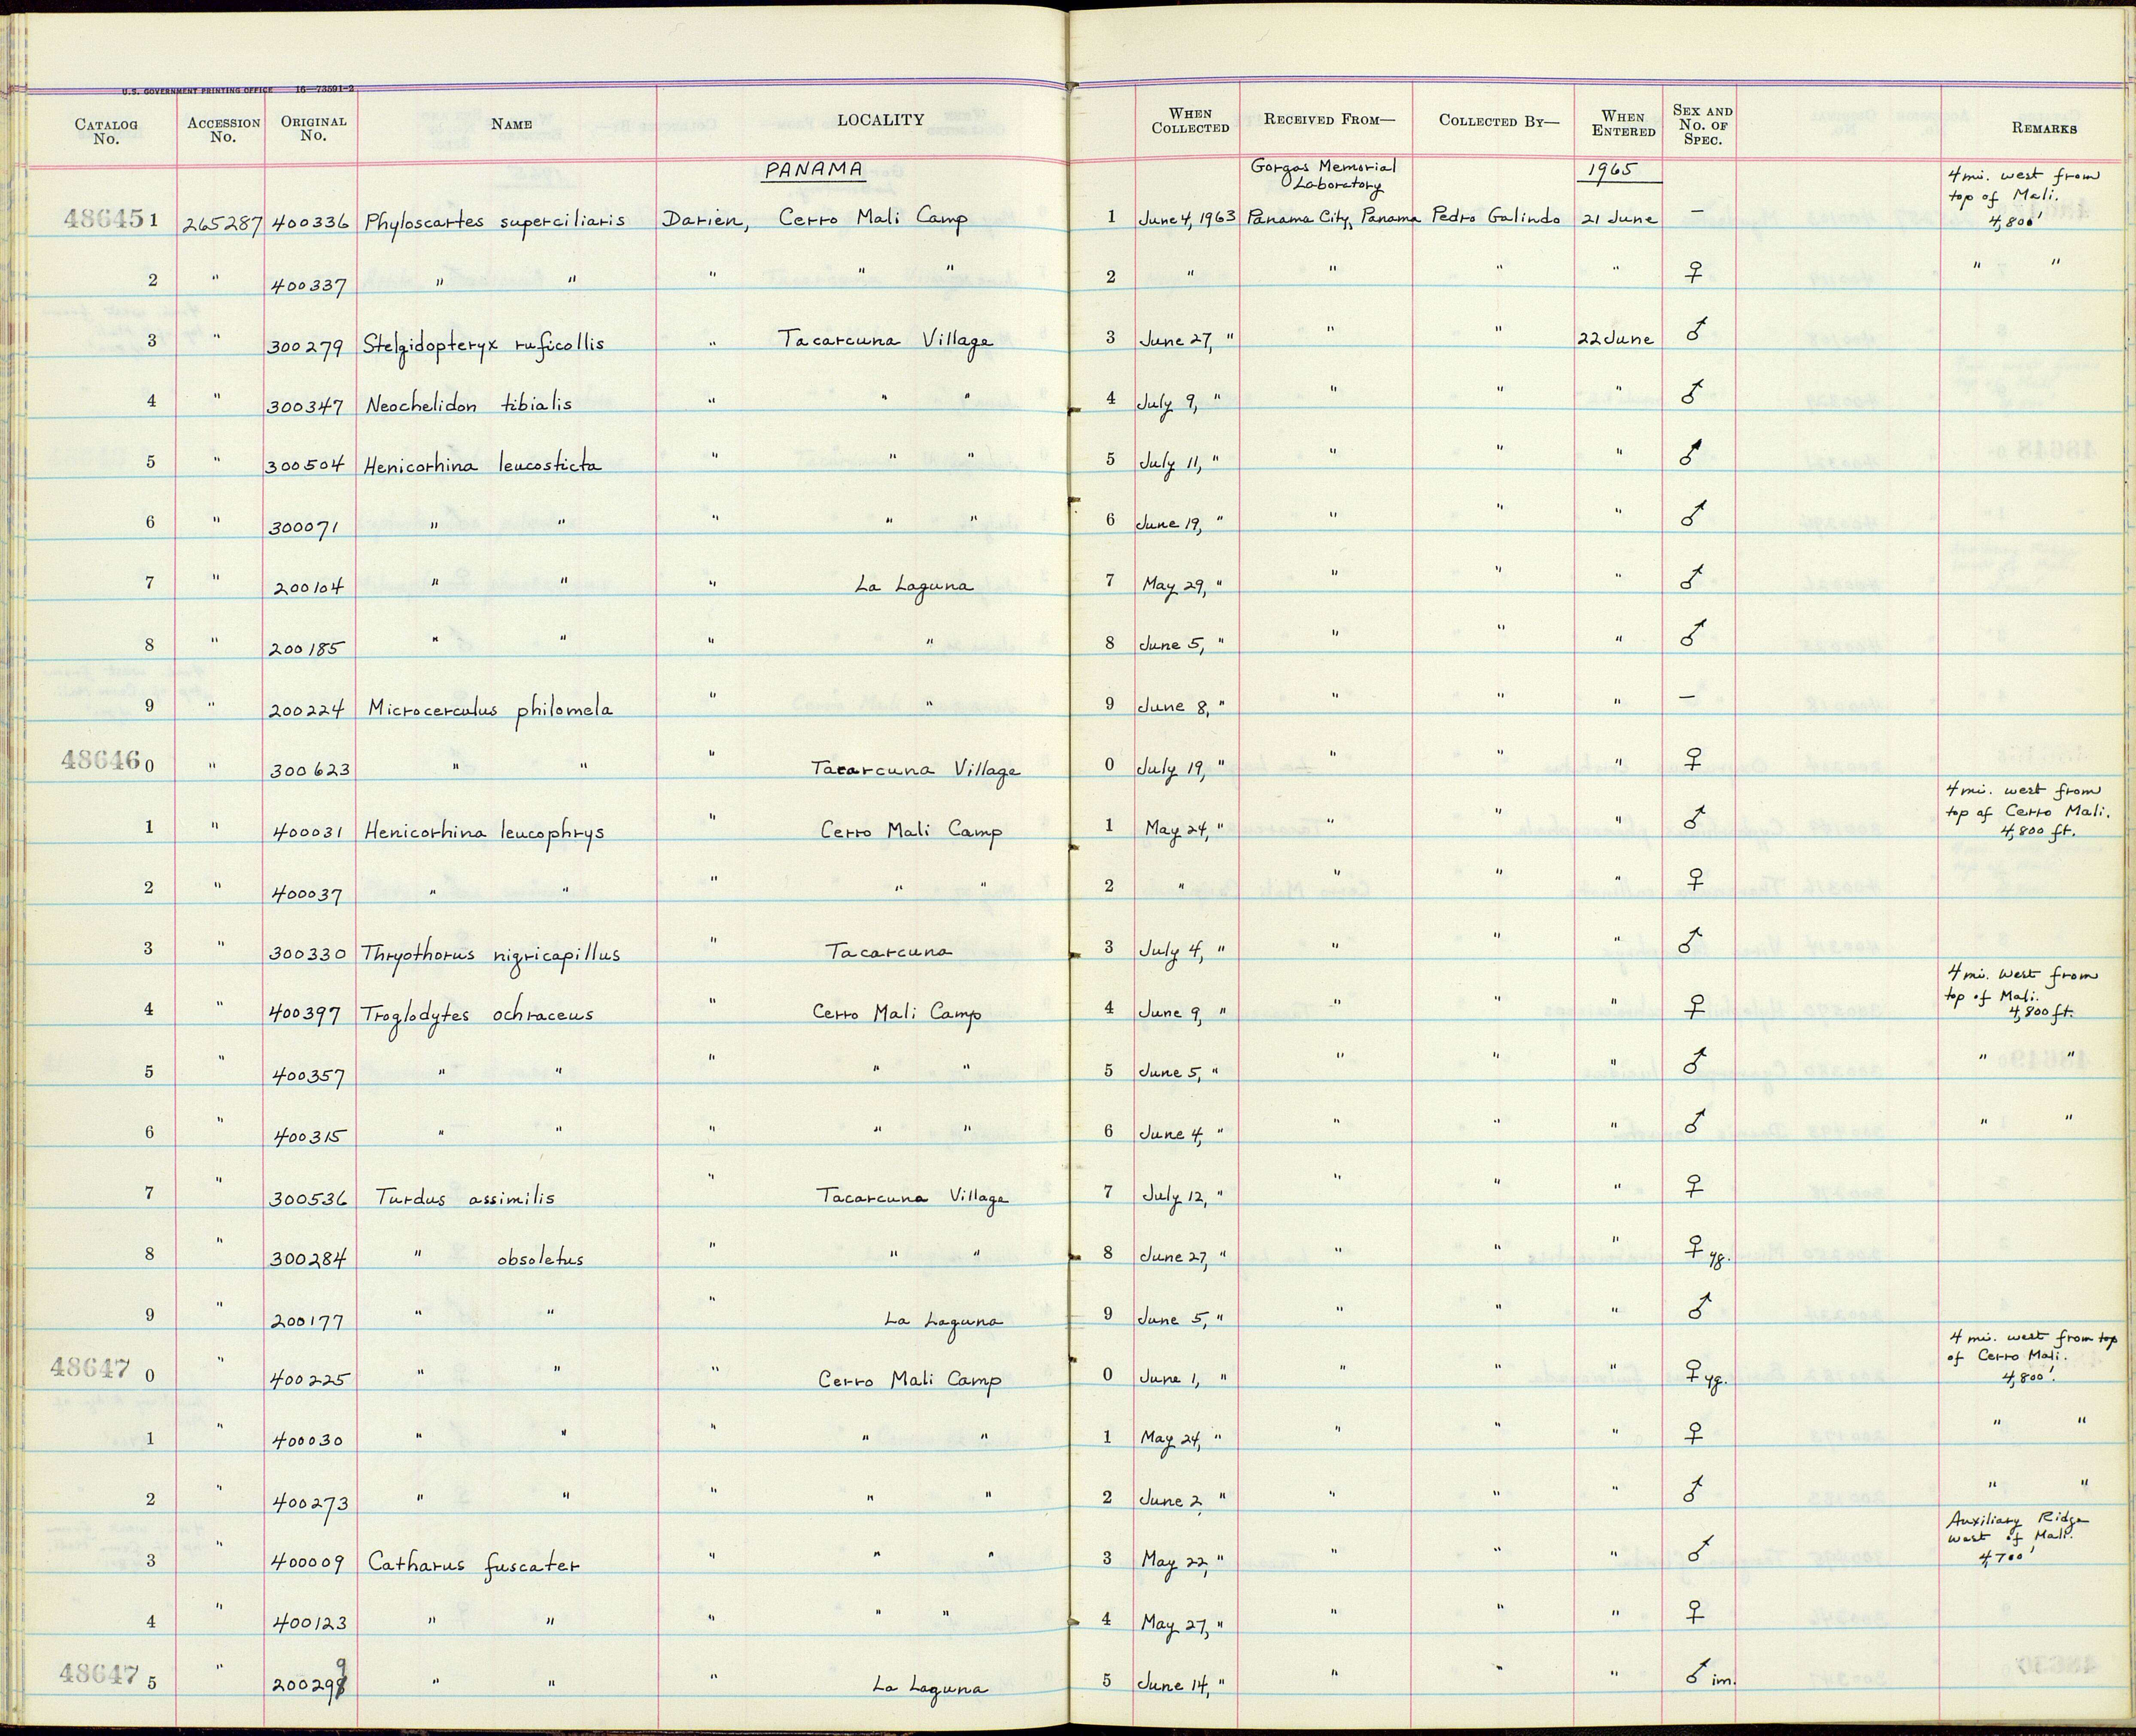 U.S. GOVERNMENT PRINTING OFFICE 16—73591-2
CATALOG No. ACCESSION No. ORIGINAL No. NAME LOCALITY WHEN COLLECTED RECEIVED FROM— COLLECTED BY— WHEN ENTERED SEX AND No. OF SPEC. REMARKS
PANAMA Gorgas Memorial Laboratory 1965 4 mi. west from top of Mali.
486451 265287 400336 Phyloscartes superciliaris Darien, Cerro Mali Camp 1 June 4, 1963 Panama City, Panama Pedro Galindo 21 June — 4,800'
2 " 400337 " " " " " 2 " " " " ♀ " "
3 " 300279 Stelgidopteryx ruficollis " Tacarcuna Village 3 June 27, " " " 22 June ♂
4 " 300347 Neochelidon tibialis " " " 4 July 9, " " " " ♂
5 " 300504 Henicorhina leucosticta " " " 5 July 11, " " " " ♂
6 " 300071 " " " " " 6 June 19, " " " " ♂
7 " 200104 " " " La Laguna 7 May 29, " " " " ♂
8 " 200185 " " " " 8 June 5, " " " " ♂
9 " 200224 Microcerculus philomela " " 9 June 8, " " " " —
48646 0 " 300623 " " " Tacarcuna Village 0 July 19, " " " " ♀
1 " 400031 Henicorhina leucophrys " Cerro Mali Camp 1 May 24, " " " " ♂ 4 mi. west from top of Cerro Mali. 4,800 ft.
2 " 400037 " " " " " 2 " " " " ♀
3 " 300330 Thryothorus nigricapillus " Tacarcuna 3 July 4, " " " " ♂
4 " 400397 Troglodytes ochraceus " Cerro Mali Camp 4 June 9, " " " " ♀ 4 mi. west from top of Mali. 4,800 ft.
5 " 400357 " " " " " 5 June 5, " " " " ♂ " "
6 " 400315 " " " " " 6 June 4, " " " " ♂ " "
7 " 300536 Turdus assimilis " Tacarcuna Village 7 July 12, " " " " ♀
8 " 300284 " obsoletus " " " 8 June 27, " " " " ♀ yg.
9 " 200177 " " " La Laguna 9 June 5, " " " " ♂
48647 0 " 400225 " " " Cerro Mali Camp 0 June 1, " " " " ♀ yg. 4 mi. west from top of Cerro Mali. 4,800'.
1 " 400030 " " " " " 1 May 24, " " " " ♀ " "
2 " 400273 " " " " " 2 June 2, " " " " ♂ " "
3 " 400009 Catharus fuscater " " " 3 May 22, " " " " ♂ Auxiliary Ridge west of Mali. 4,700'
4 " 400123 " " " " " 4 May 27, " " " " ♀
48647 5 " 200299 " " " La Laguna 5 June 14, " " " " ♂ im.